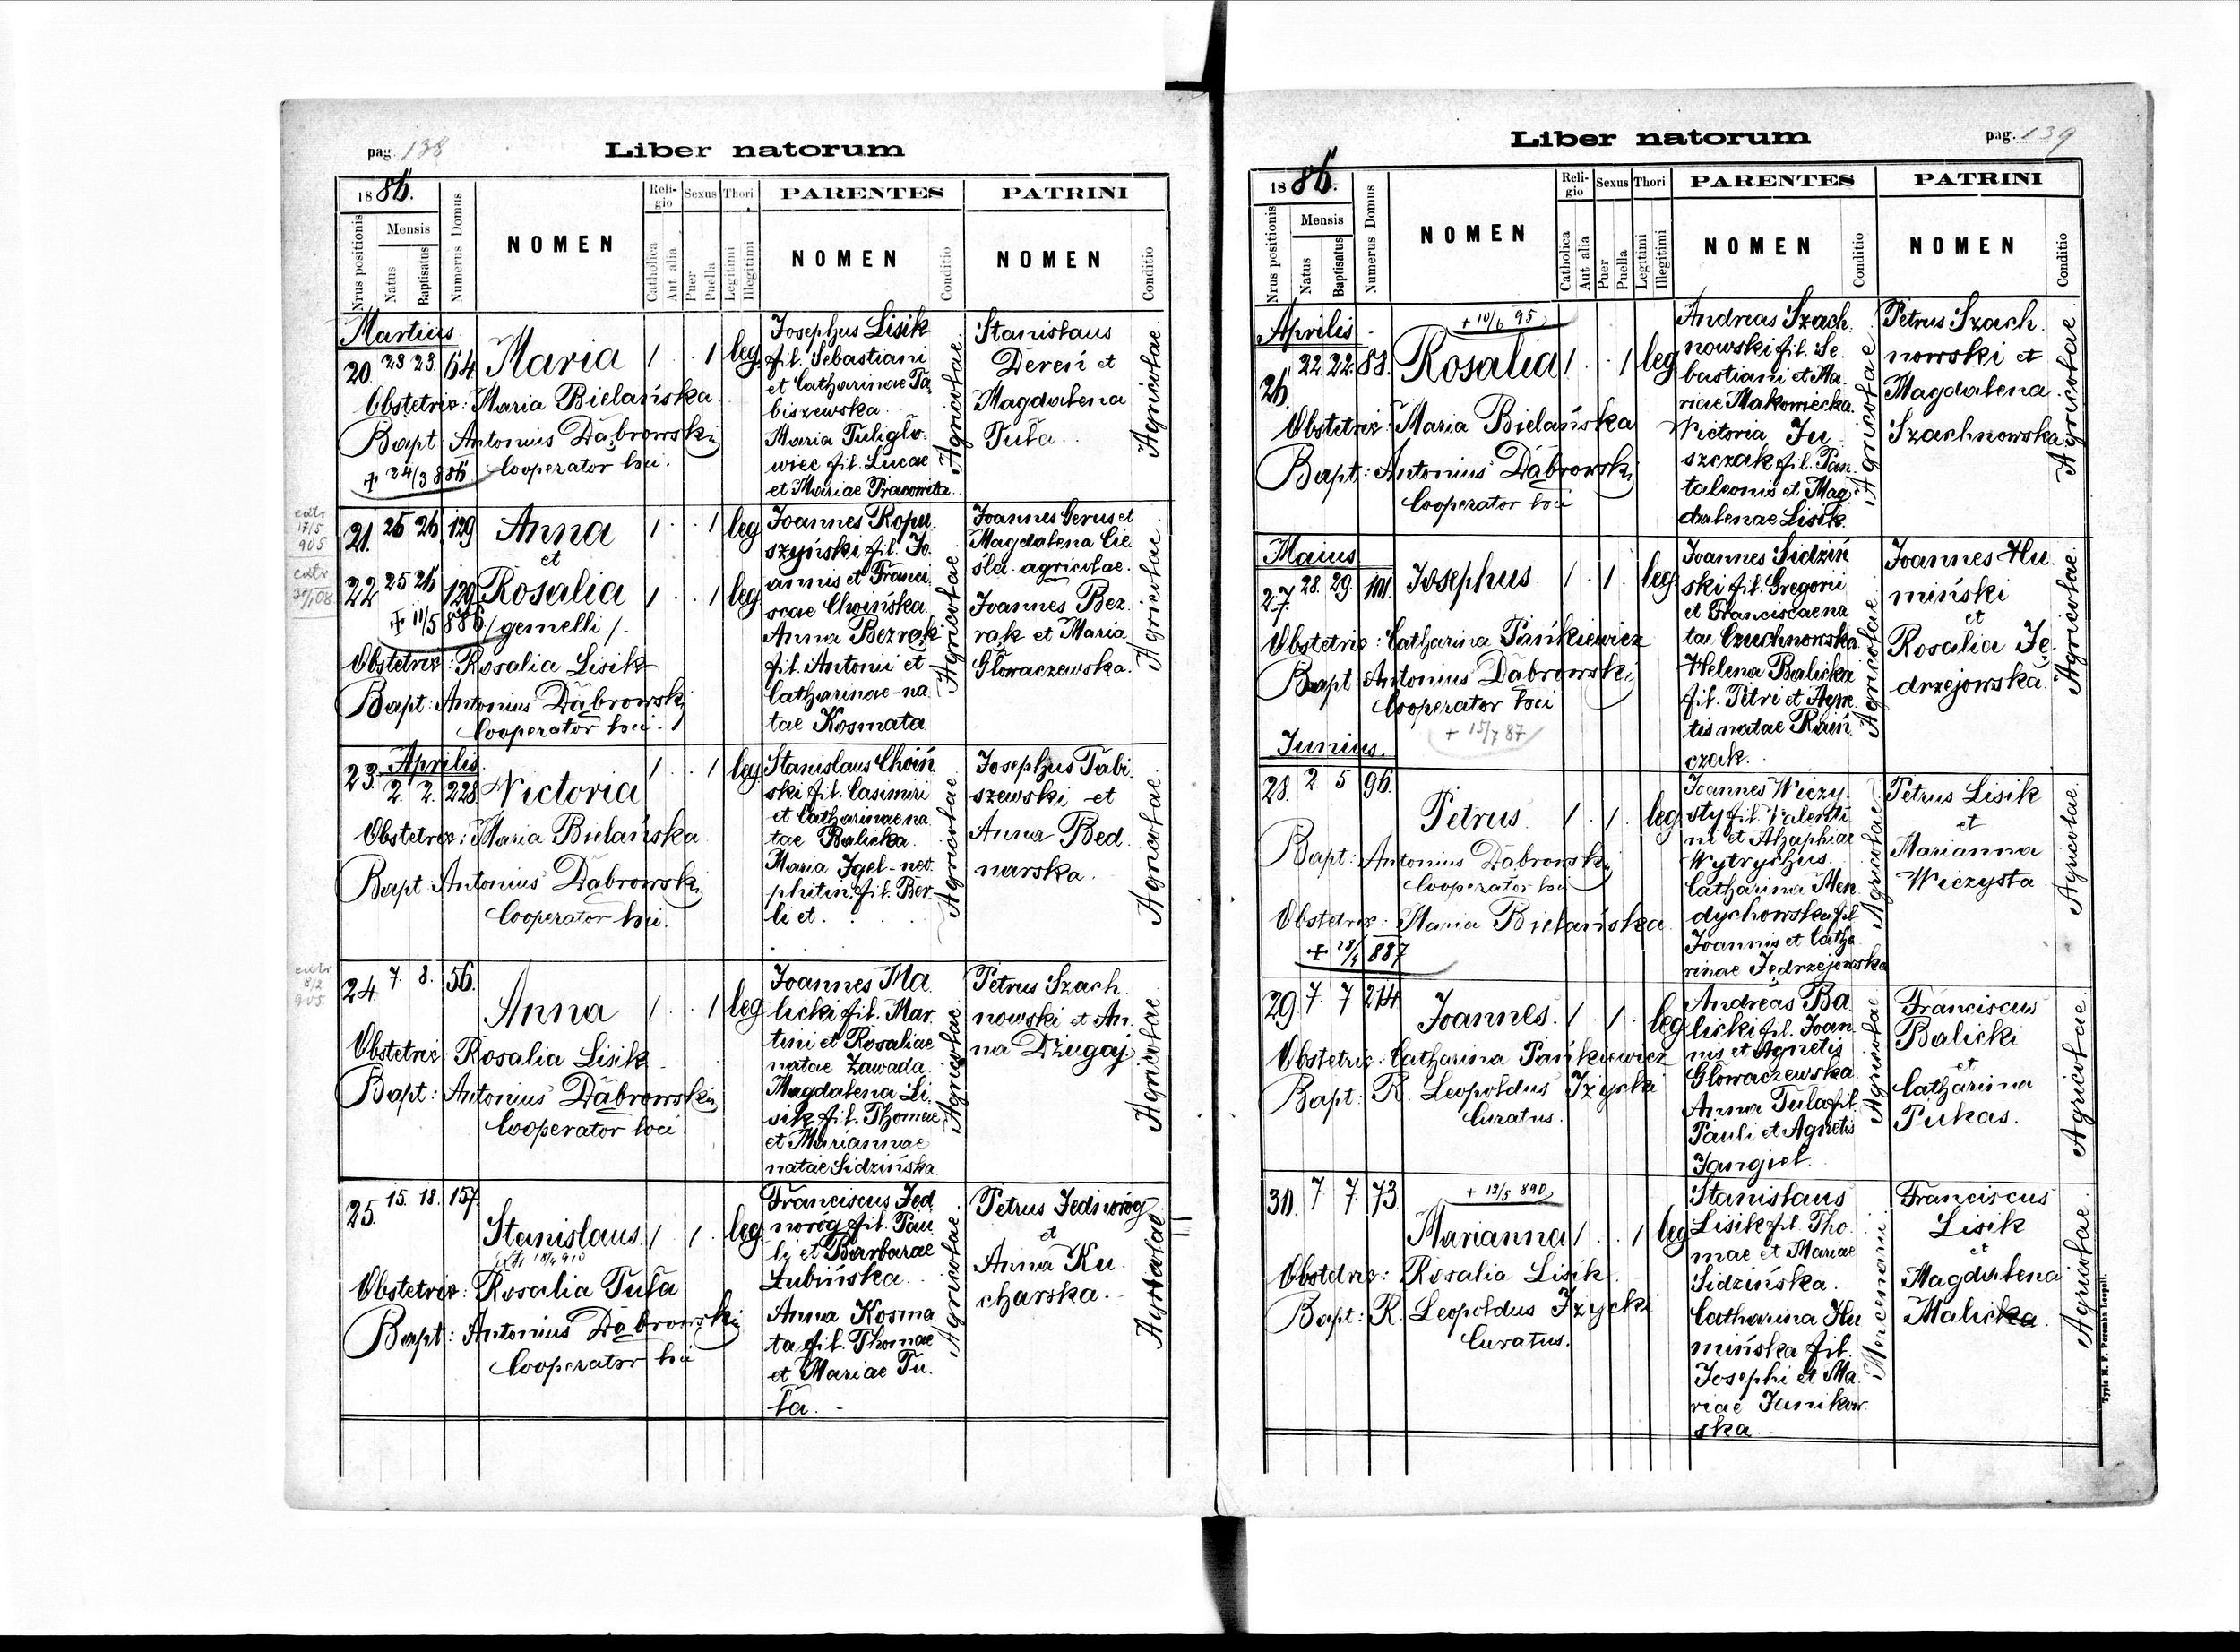 pag. 138
Liber natorum
1886.
Nrus positionis
Mensis
Natus
Baptisatus
Numerus Domus
NOMEN
Reli-
gio
Catholica
Aut alia
Sexus
Puer
Puella
Thori
Legitimi
Illegitimi
PARENTES
NOMEN
Conditio
PATRINI
NOMEN
Conditio
Martius
20. 23 23. 64. Maria 1 1 leg.
Obstetrix: Maria Bielańska
Bapt: Antonius Dąbrowski
Cooperator loci.
+ 24/3 886
Josephus Lisik
fil. Sebastiani
et Catharinae Ta
biszewska.
Maria Tuligło
wiec fil. Lucae
et Mariae
Agricolae
Stanislaus
Dereń et
Magdalena
Tuła.
Agricolae
extr
17/5
905
21. 25 26. 129 Anna 1 1 leg
et
extr
22 25 26 129 Rosalia 1 1 leg
+ 11/5 886 /gemelli/.
Obstetrix: Rosalia Lisik
Bapt: Antonius Dąbrowski
Cooperator loci.
Joannes Kopu
szyński fil. Jo
annis et Franci
scae Choińska.
Anna Bezrak
fil. Antonii et
Catharinae - na
tae Kosmata
Agricolae
Joannes Gerus et
Magdalena Cie
śla agricolae.
Joannes Bez
rak et Maria
Głowaczewska.
Agricolae
Aprilis
23. 2. 2. 228. Victoria 1 1 leg
Obstetrix: Maria Bielańska
Bapt: Antonius Dąbrowski
Cooperator loci.
Stanislaus Choiń
ski fil. Casimiri
et Catharinae na
tae Balicka.
Maria Igel - neo
phitin, fil. Ber
li et .
Agricolae
Josephus Tabi
szewski et
Anna Bed
narska.
Agricolae
extr
8/2
905.
24. 7. 8. 56. Anna 1 1 leg
Obstetrix: Rosalia Lisik
Bapt: Antonius Dąbrowski
Cooperator loci
Joannes Ma
licki fil. Mar
tini et Rosaliae
natae Zawada.
Magdalena Li
sik fil. Thomae
et Mariannae
natae Sidzińska.
Agricolae
Petrus Szach
nowski et An
na Dżugaj
Agricolae
25. 15. 18. 157. Stanislaus. 1 1 leg
Extr 18/4 910
Obstetrix: Rosalia Tuła
Bapt: Antonius Dąbrowski
Cooperator loci
Franciscus Jed
noróg fil. Pau
li et Barbarae
Łubińska.
Anna Kosma
ta fil. Thomae
et Mariae Tu
ła. -
Agricolae
Petrus Jednoróg
et
Anna Ku
charska.
Agricolae
Liber natorum
pag. 139
1886.
Nrus positionis
Mensis
Natus
Baptisatus
Numerus Domus
NOMEN
Reli-
gio
Catholica
Aut alia
Sexus
Puer
Puella
Thori
Legitimi
Illegitimi
PARENTES
NOMEN
Conditio
PATRINI
NOMEN
Conditio
Aprilis
+ 10/6 95
26. 22. 22. 88. Rosalia 1 1 leg
Obstetrix: Maria Bielańska
Bapt: Antonius Dąbrowski
Cooperator loci
Andreas Szach
nowski fil. Se
bastiani et Ma
riae Makowiecka.
Victoria Ju
szczak fil. Pan
taleonis et Mag
dalenae Lisik.
Agricolae
Petrus Szach
nowski et
Magdalena
Szachnowska
Agricolae
Maius
27. 28. 29. 101. Josephus. 1 1 leg.
Obstetrix: Catharina Pańkiewicz
Bapt: Antonius Dąbrowski
Cooperator loci
+ 15/7 87
Joannes Sidziń
ski fil. Gregorii
et Franciscae na
tae Czuchnowska.
Helena Balicka
fil. Petri et Agne
tis natae Raiń
czak.
Agricolae
Joannes Hu
miński
et
Rosalia Ję
drzejowska.
Agricolae
Junius.
28. 2. 5. 96. Petrus. 1 1 leg
Bapt: Antonius Dąbrowski
Cooperator loci
Obstetrix: Maria Bielańska
+ 28/4 887
Joannes Wieczy
sty fil. Valenti
ni et Ahaphiae
Wytrychus.
Catharina Men
dychowska fil
Joannis et Catha
rinae Jędrzejowska
Agricolae
Petrus Lisik
et
Marianna
Wieczysta
Agricolae
29. 7. 7 214 Joannes. 1 1 leg
Obstetrix: Catharina Pańkiewicz
Bapt: R. Leopoldus Iżycki
Curatus.
Andreas Ba
licki fil. Joan
nis et Agnetis
Głowaczewska
Anna Tuła fil.
Pauli et Agnetis
Jangiel.
Agricolae
Franciscus
Balicki
et
Catharina
Pukas.
Agricolae
+ 12/5 890
30. 7 7. 73. Marianna 1 1 leg
Obstetrix: Rosalia Lisik.
Bapt: R. Leopoldus Iżycki
Curatus.
Stanislaus
Lisik fil. Tho
mae et Mariae
Sidzińska.
Catharina Hu
mińska fil.
Josephi et Ma
riae Junikow
ska.
Mercenarii
Franciscus
Lisik
et
Magdalena
Malicka.
Agricolae
Typis M. F. Poremba Leopoli.